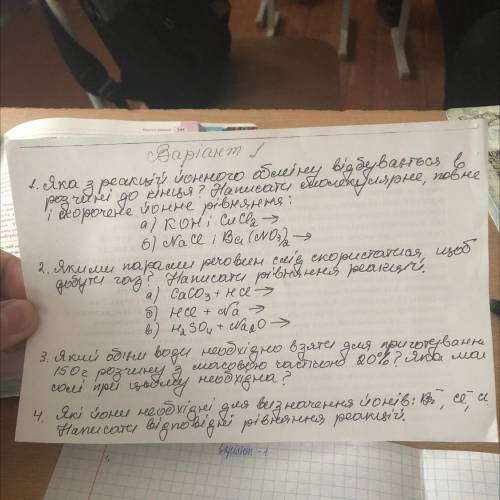 Варіант 1
1. Яка з реакцій йонного обміну відбувається в
розчині до кінця? Написати молекулярне, повне
і скорочене йонне рівняння:
а) KOH і CuCl₂ →
б) NaCl і Ba(NO₃)₂ →
2. Якими парами речовин слід скористатися, щоб
добути газ? Написати рівняння реакцій.
а) CaCO₃ + HCl →
б) HCl + Na →
в) H₂SO₄ + Na₂O →
3. Який об'єм води необхідно взяти для приготуванн
150 г розчину з масовою часткою 20%? Яка мас
солі при цьому необхідна?
4. Які йони необхідні для визначення йонів: Br⁻, Cl⁻,
Написати відповідні рівняння реакцій.
Варіант - 1